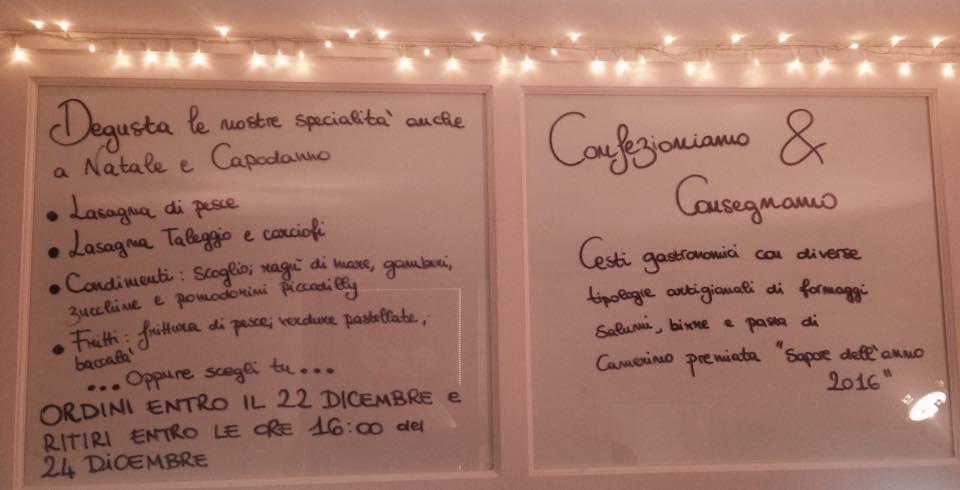 Degusta le nostre specialità anche
a Natale e Capodanno
• Lasagna di pesce
• Lasagna Taleggio e carciofi
• Condimenti: scoglio; ragù di mare, gamberi,
zucchine e pomodorini piccadilly
• Fritti: frittura di pesce; verdure pastellate;
baccalà
...Oppure scegli tu...
ORDINI ENTRO IL 22 DICEMBRE e
RITIRI ENTRO LE ORE 16:00 del
24 DICEMBRE
Confezioniamo &
Consegnamo
Cesti gastronomici con diverse
tipologie artigianali di formaggi
salumi, birre e pasta di
Camerino premiata "Sapore dell'anno
2016"